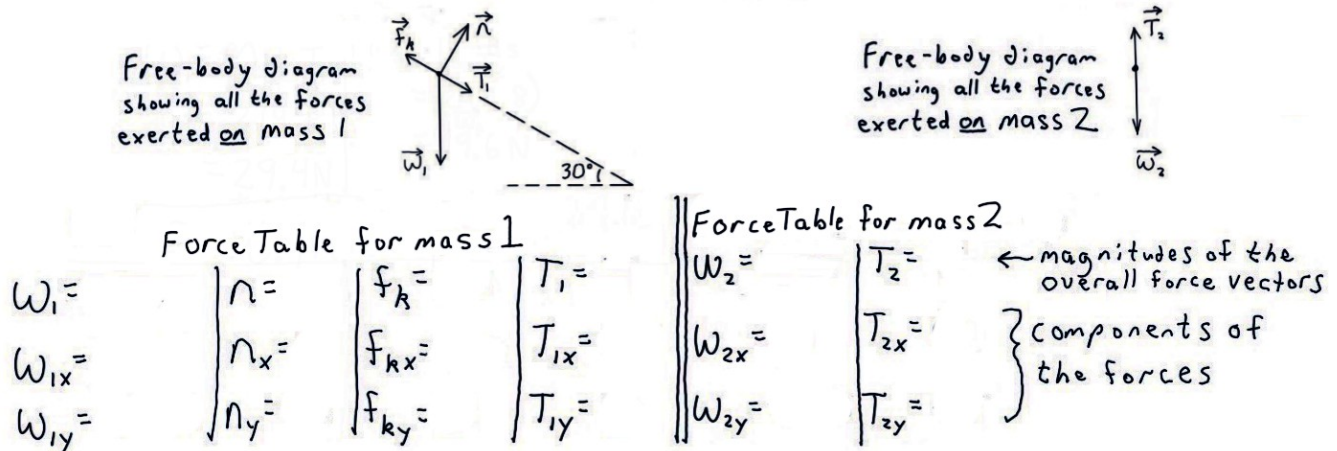 Free-body diagram
showing all the forces
exerted on mass 1
f⃗ₖ
n⃗
T⃗₁
w⃗₁
30°
Free-body diagram
showing all the forces
exerted on mass 2
T⃗₂
w⃗₂
Force Table for mass 1
w₁=
n=
fₖ=
T₁=
w₁ₓ=
nₓ=
fₖₓ=
T₁ₓ=
w₁y=
ny=
fₖy=
T₁y=
Force Table for mass 2
w₂=
T₂=
← magnitudes of the
overall force vectors
w₂ₓ=
T₂ₓ=
w₂y=
T₂y=
components of
the forces